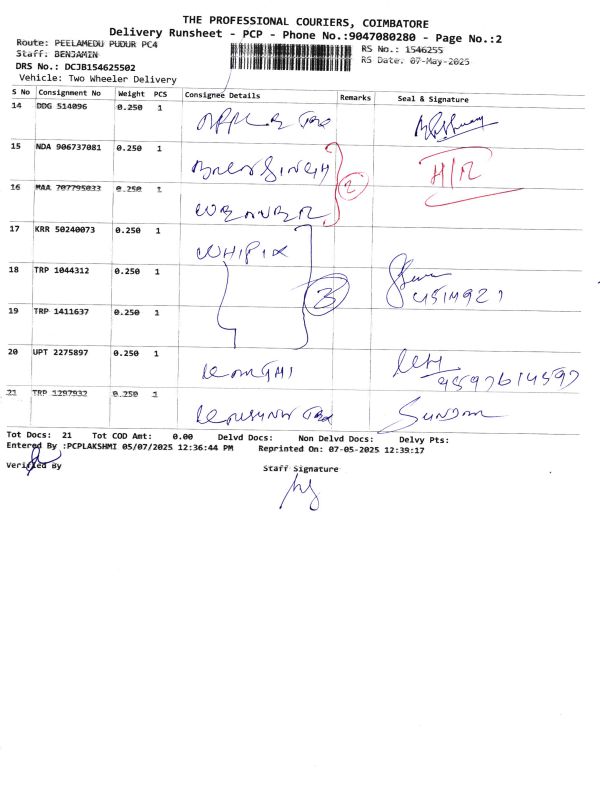 THE PROFESSIONAL COURIERS, COIMBATORE
Delivery Runsheet - PCP - Phone No.:9047080280 - Page No.:2
Route: PEELAMEDU PUDUR PC4
RS No.: 1546255
Staff: BENJAMIN
RS Date: 07-May-2025
DRS No.: DCJB154625502
Vehicle: Two Wheeler Delivery
S No Consignment No Weight PCS Consignee Details Remarks Seal & Signature
14 DDG 514096 0.250 1
15 NDA 906737081 0.250 1 H/R
16 MAA 707795033 0.250 1 2
17 KRR 50240073 0.250 1 WHIPIX
18 TRP 1044312 0.250 1 3
19 TRP 1411637 0.250 1
20 UPT 2275897 0.250 1
21 TRP 1297932 0.250 1 SUNDAR
Tot Docs: 21 Tot COD Amt: 0.00 Delvd Docs: Non Delvd Docs: Delvy Pts:
Entered By :PCPLAKSHMI 05/07/2025 12:36:44 PM Reprinted On: 07-05-2025 12:39:17
Verified By
Staff Signature